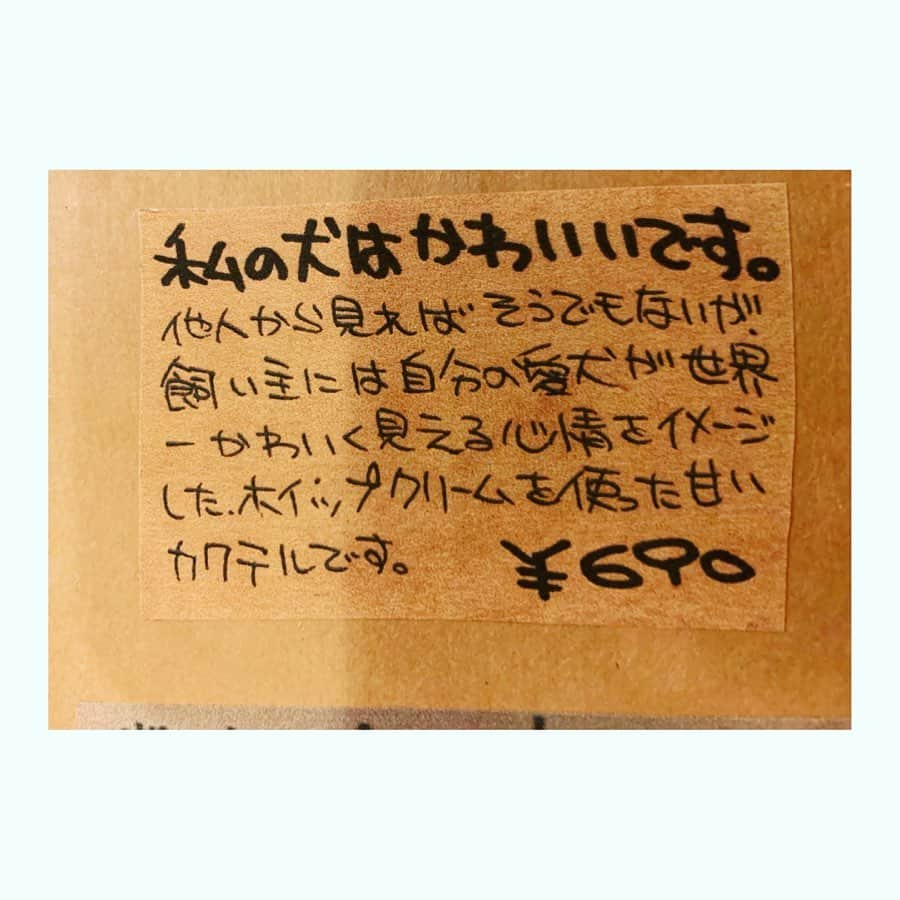 私の犬はかわいいです。
他人から見ればそうでもないが、
飼い主には自分の愛犬が世界
一かわいく見える心情をイメージ
した、ホイップクリームを使った甘い
カクテルです。 ¥690